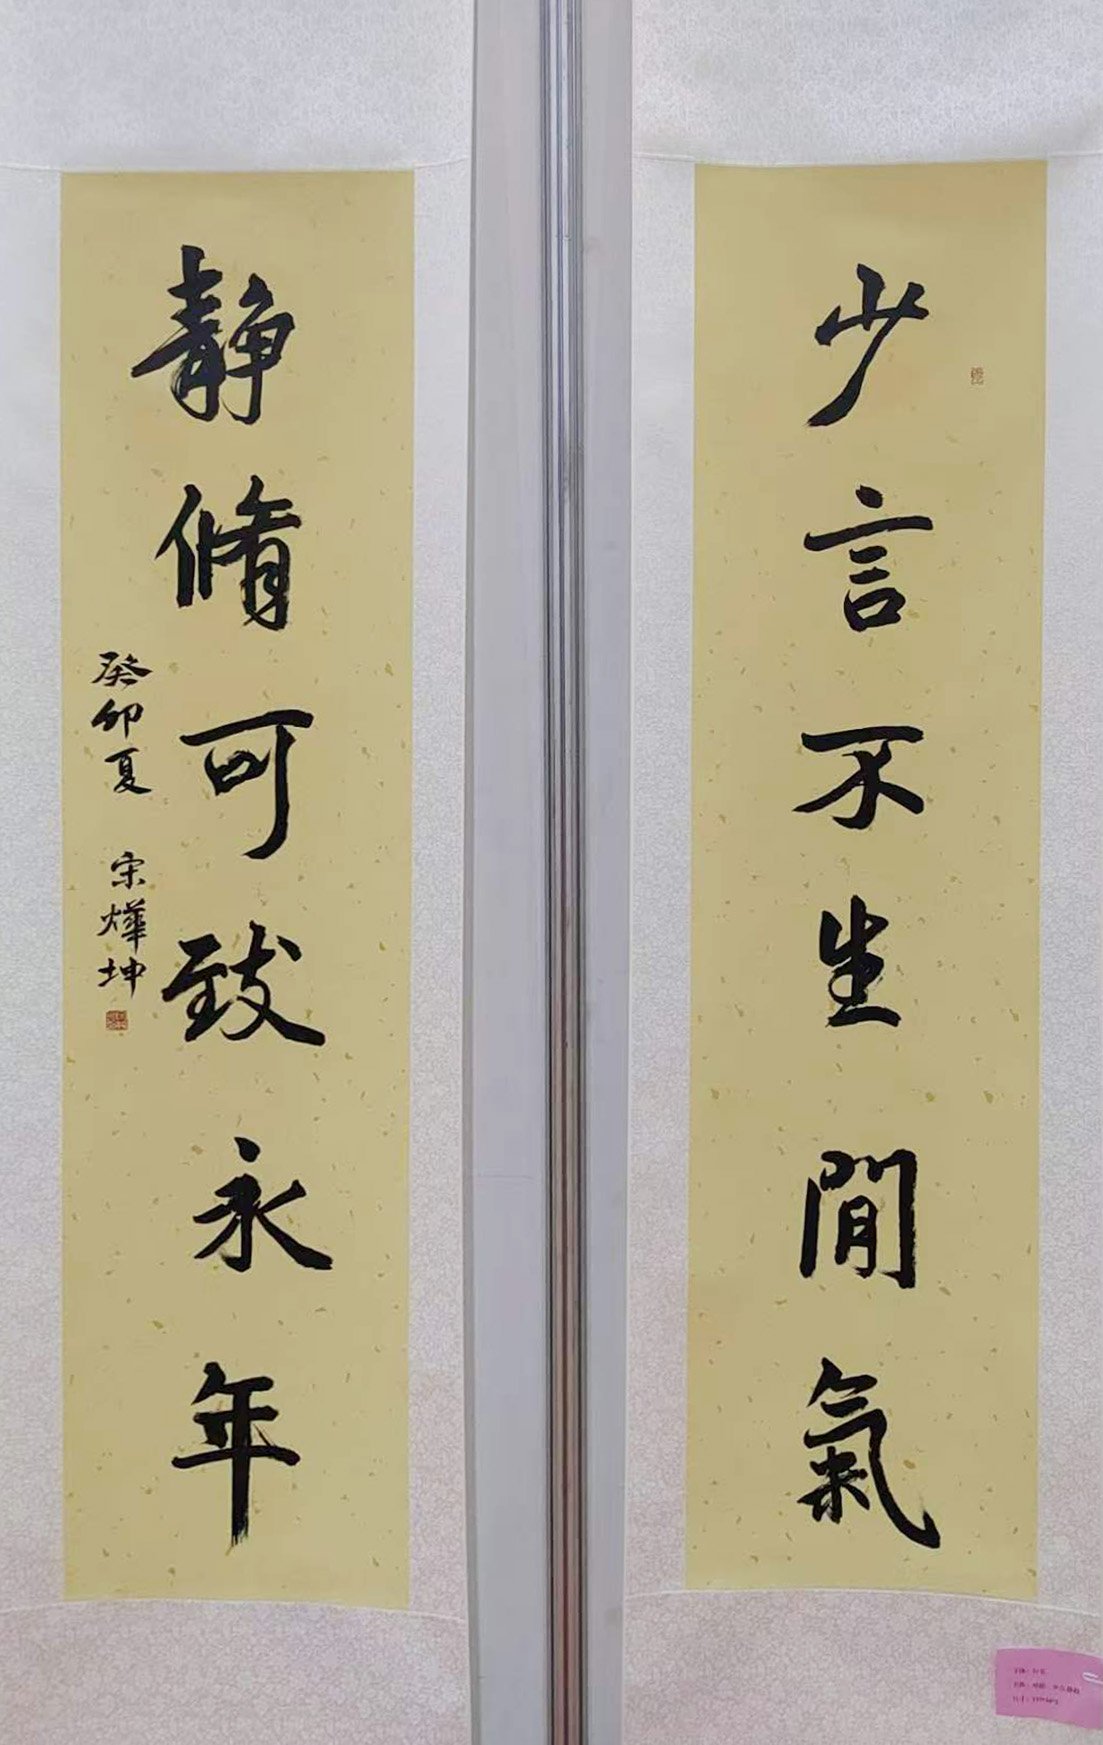 少言不生閒氣
靜脩可致永年
癸卯夏 宋燁坤